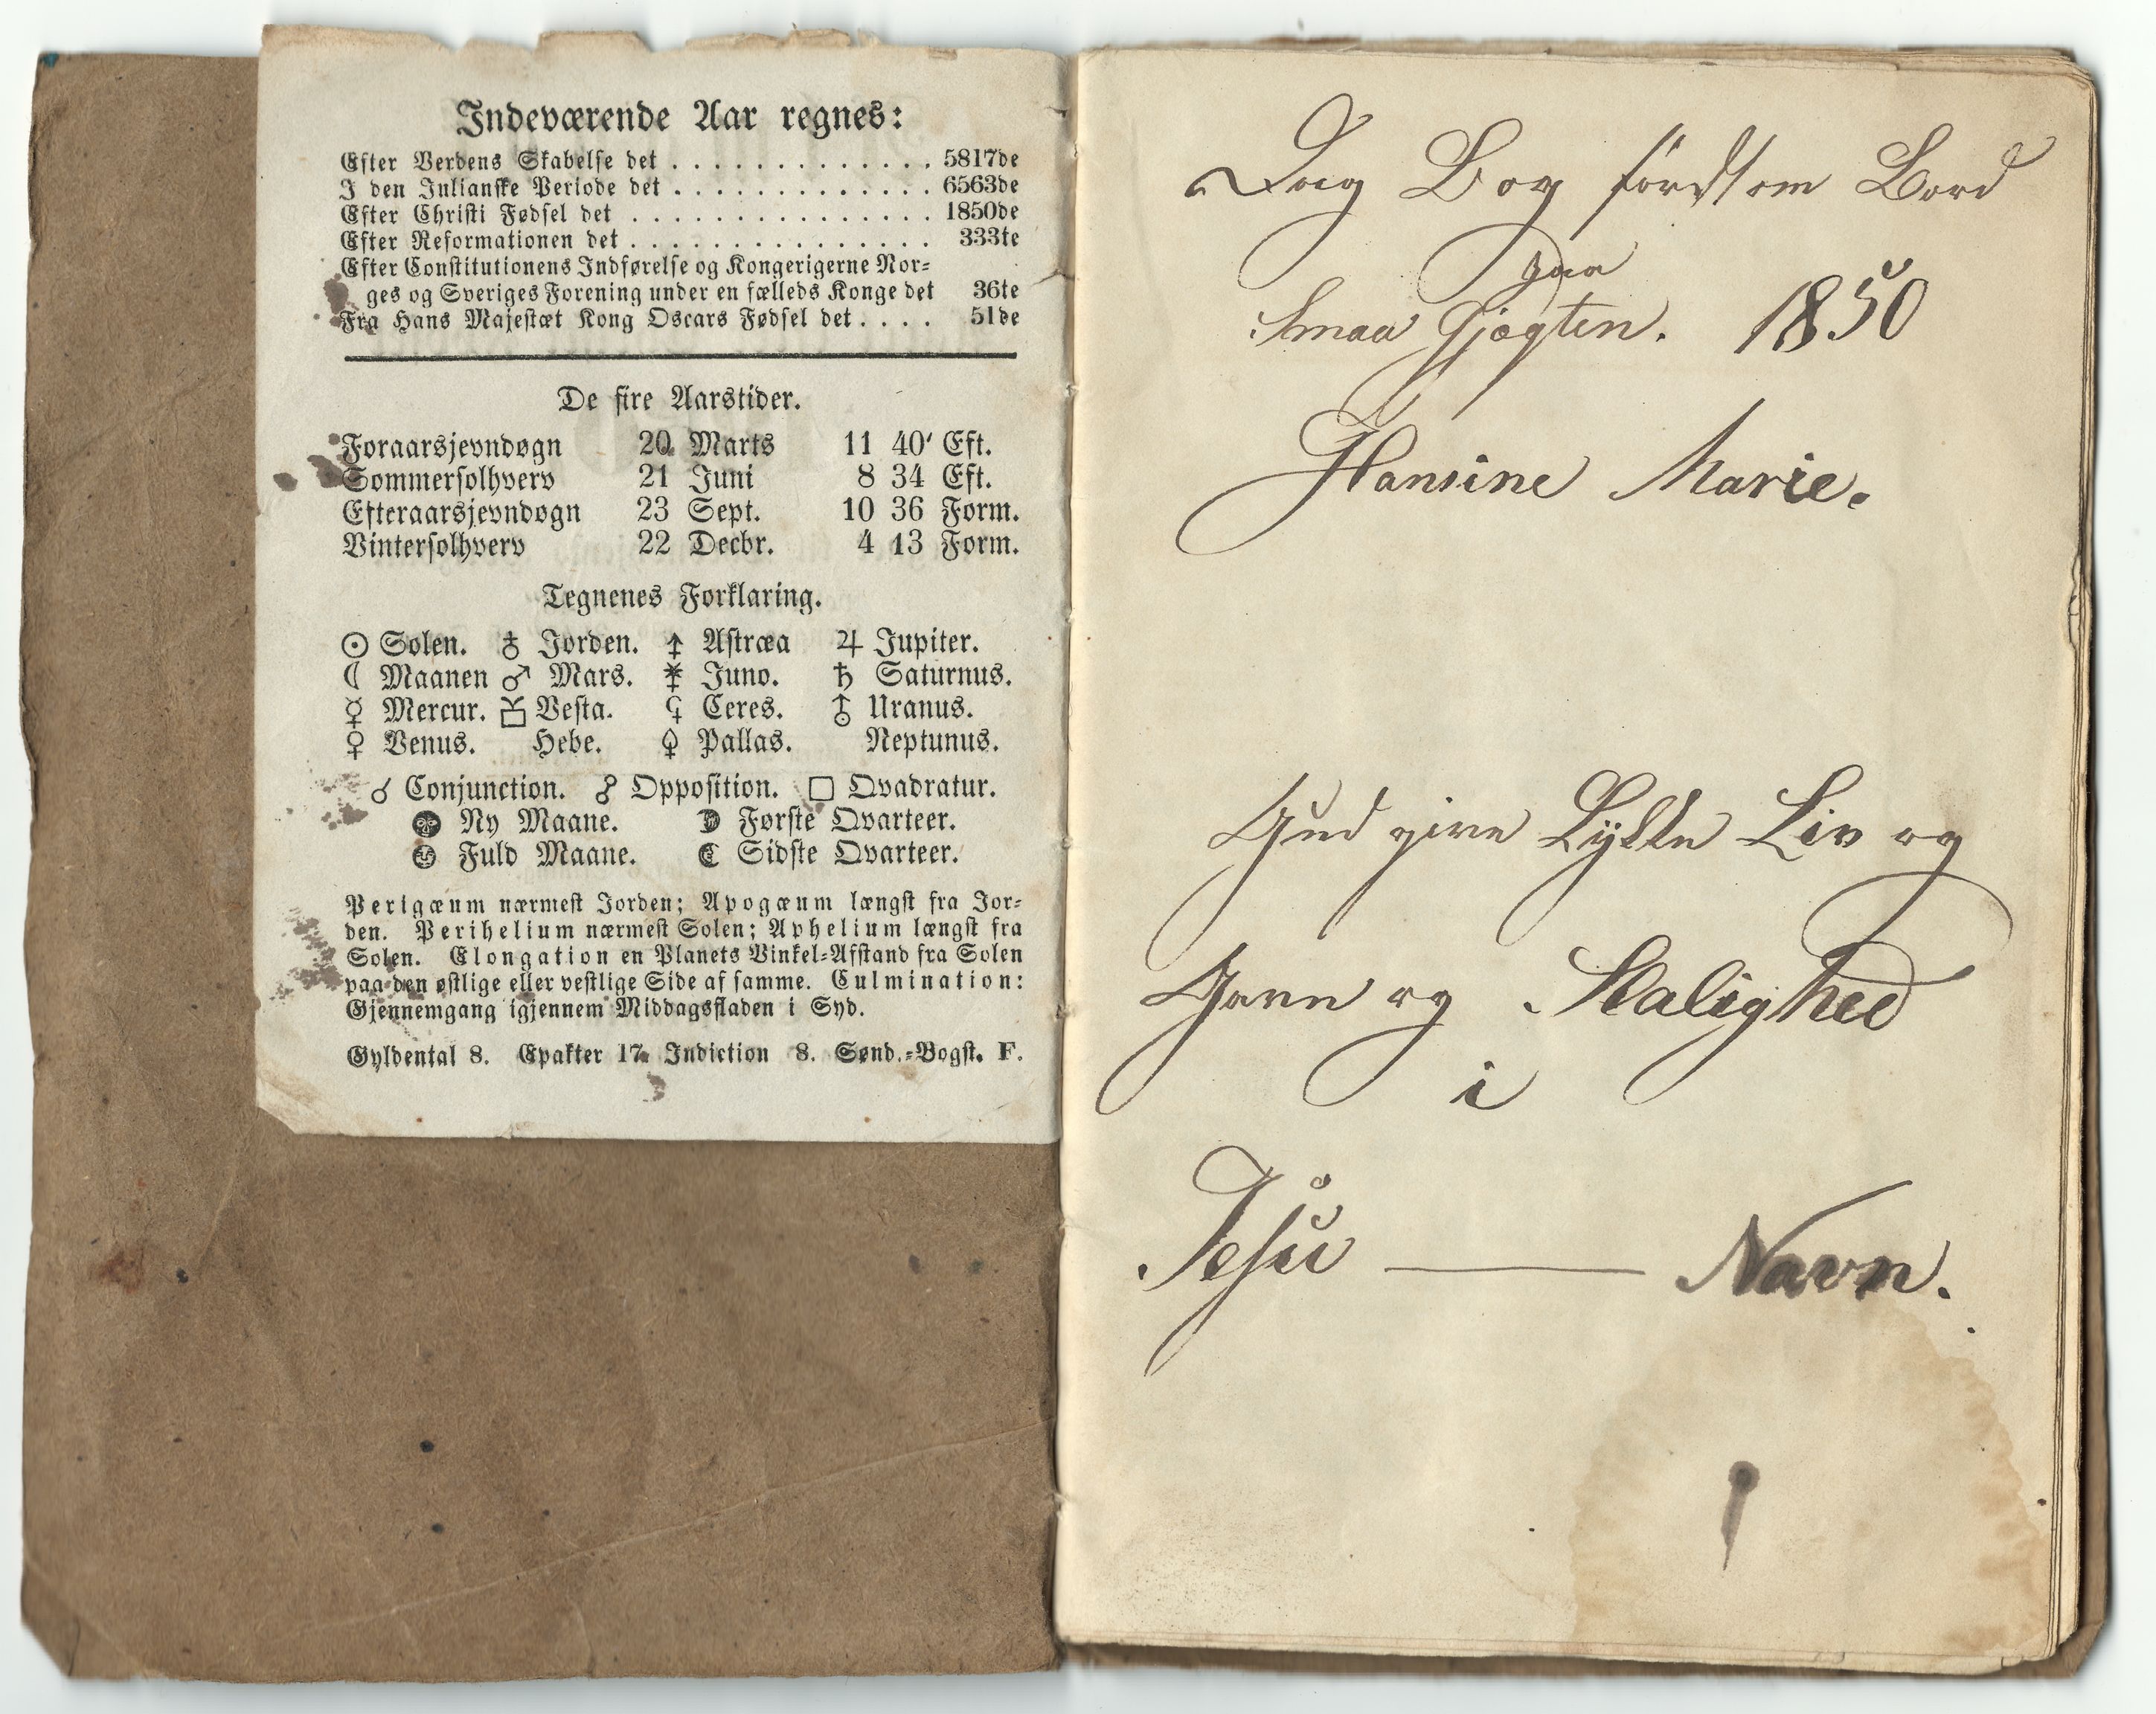 Indeværende Aar regnes:
Efter Verdens Skabelse det . . . . . . . . . . . . . . 5817de
I den Julianske Periode det . . . . . . . . . . . . . . 6563de
Efter Christi Fødsel det . . . . . . . . . . . . . . . . 1850de
Efter Reformationen det . . . . . . . . . . . . . . . . 333te
Efter Constitutionens Indførelse og Kongerigerne Nor-
ges og Sveriges Forening under en fælleds Konge det 36te
Fra Hans Majestæt Kong Oscars Fødsel det . . . . 51de
De fire Aarstider.
Foraarsjevndøgn 20 Marts 11 40' Eft.
Sommersolhverv 21 Juni 8 34 Eft.
Efteraarsjevndøgn 23 Sept. 10 36 Form.
Vintersolhverv 22 Decbr. 4 13 Form.
Tegnenes Forklaring.
☉ Solen. ♁ Jorden. ⚖ Astræa ♃ Jupiter.
☾ Maanen ♂ Mars. ⚵ Juno. ♄ Saturnus.
☿ Mercur. ⚶ Vesta. ⚳ Ceres. ⛢ Uranus.
♀ Venus. Hebe. ⚴ Pallas. Neptunus.
☌ Conjunction. ☍ Opposition. □ Qvadratur.
Ny Maane. Første Qvarteer.
Fuld Maane. Sidste Qvarteer.
Perigæum nærmest Jorden; Apogæum længst fra Jor-
den. Perihelium nærmest Solen; Aphelium længst fra
Solen. Elongation en Planets Vinkel-Afstand fra Solen
paa den østlige eller vestlige Side af samme. Culmination:
Gjennemgang igjennem Middagsfladen i Syd.
Gyldental 8. Epakter 17. Indiction 8. Sønd.-Bogst. F.
Dag Bog fördt om Bord
paa
Smaa Gjægten. 1850
Hansine Marie.
Gud give Lykke Liv og
Gavn og Salighed
i
Jesu — Navn.